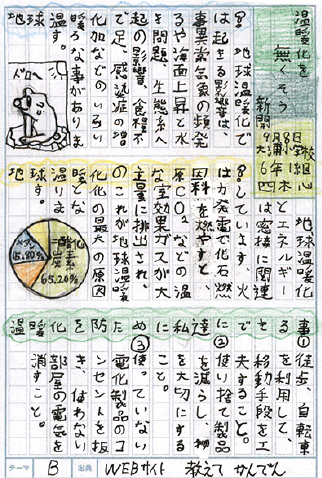 温暖化を
無くそう
新聞
9月8日
6年1組
温暖化で起きる事は?
地球温暖化で
起きる影響は、
異常気象の頻発
や海面上昇と水
問題、生態系へ
の影響、食糧不
足、感染症の増
加などのいろい
ろな事がありま
す。
地球温暖化の主な原因は?
地球温暖化
とエネルギー
は密接に関連
しています。火
力発電で化石燃
料を燃やすと、
CO2などの温
室効果ガスが大
量に排出され、
これが地球温暖
化の最大の原因
とな
りま
す。
二酸化
炭素
65.20%
メタン
15.80%
温暖化を防ために私達にできる事
①徒歩、自転車
を利用して、
移動手段を工
夫すること。
②使い捨て製品
を減らし、物
を大切にする
こと。
③使っていない
電化製品のコ
ンセントを抜
き、使わない
部屋の電気を
消すこと。
テーマ B 出典 WEBサイト 教えて かんでん